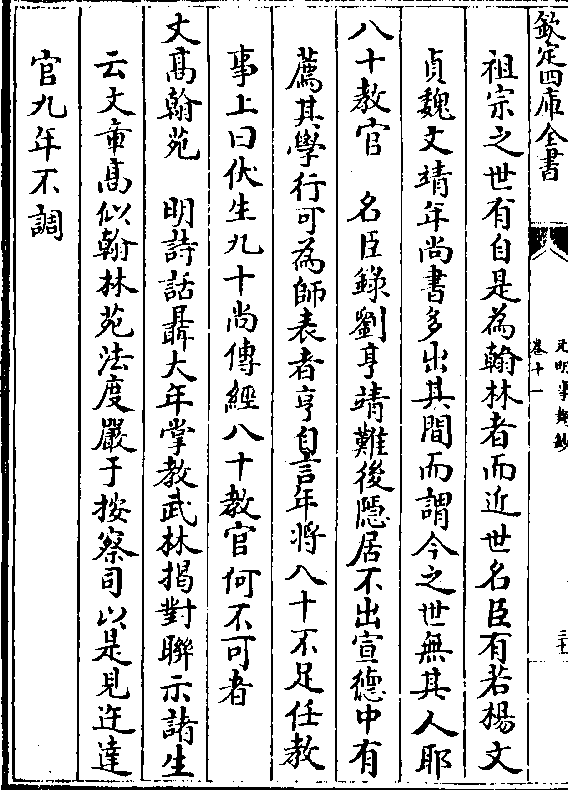 欽定四庫全書
元明事類鈔
卷十一
祖宗之世有自是為翰林者而近世名臣有若楊文
貞魏文靖年尚書多出其間而謂今之世無其人耶
八十教官　名臣錄劉亨靖難後隱居不出宣德中有
薦其學行可為師表者亨自言年將八十不足任教
事上曰伏生九十尚傳經八十教官何不可者
文高翰苑　明詩話聶大年掌教武林揭對聯示諸生
云文章高似翰林苑法度嚴于按察司以是見迕達
官九年不調